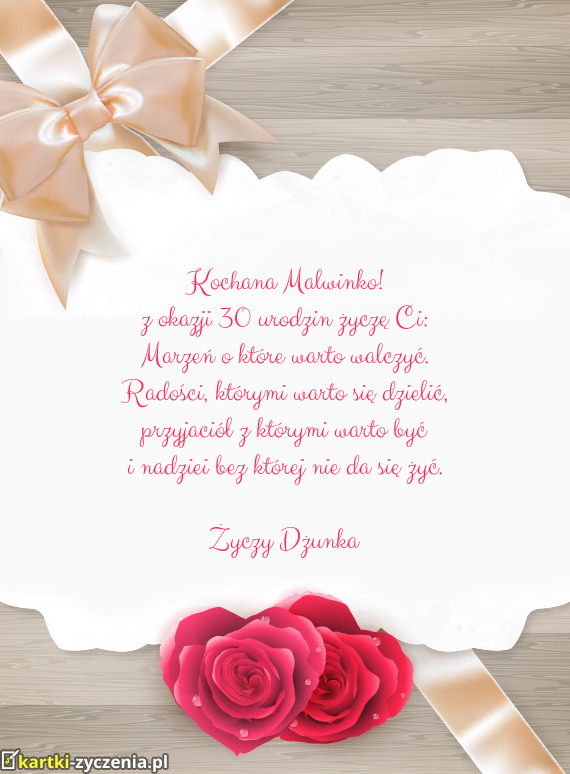 Kochana Malwinko!
z okazji 30 urodzin życzę Ci:
Marzeń o które warto walczyć.
Radości, którymi warto się dzielić,
przyjaciół z którymi warto być
i nadziei bez której nie da się żyć.
Życzy Dżunka
kartki-zyczenia.pl